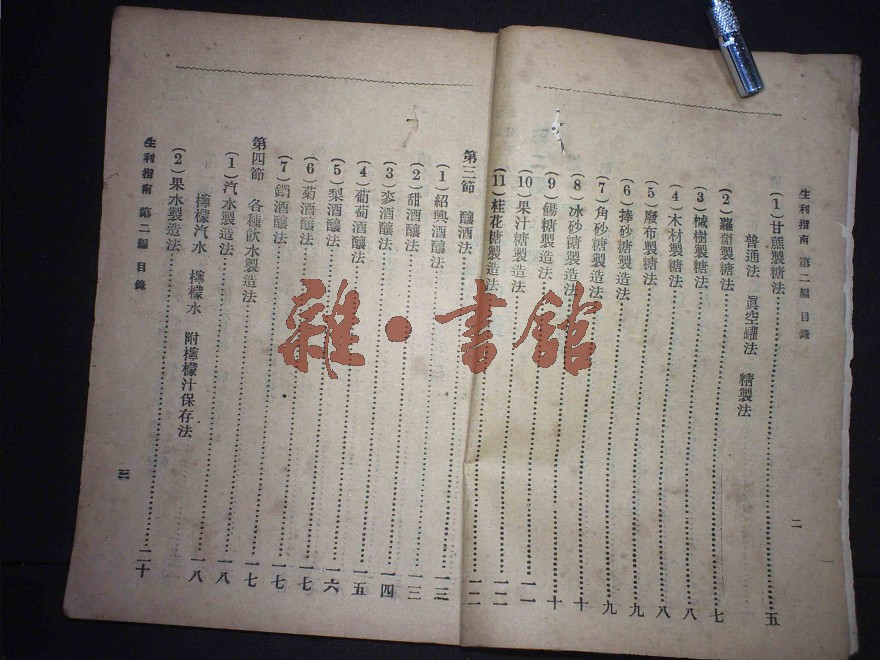 生利指南 第二編 目錄
(1)甘蔗製糖法…………五
普通法 眞空罐法 精製法
(2)蘿蔔製糖法…………七
(3)槭樹製糖法…………八
(4)木材製糖法…………八
(5)廢布製糖法…………九
(6)捧砂糖製造法…………九
(7)角砂糖製造法…………九
(8)冰砂糖製造法…………十
(9)餳糖製造法…………十
(10)果汁糖製造法…………一一
(11)桂花糖製造法…………一二
二
第三節 釀酒法…………一二
(1)紹興酒釀法…………一三
(2)甜酒釀法…………一三
(3)麥酒釀法…………一四
(4)葡萄酒釀法…………一五
(5)梨酒釀法…………一六
(6)菊酒釀法…………一七
(7)酒釀法…………一七
第四節 各種飲水製造法…………一七
(1)汽水製造法…………一八
檸檬汽水 檸檬水 附檸檬汁保存法…………一八
(2)果水製造法…………二十
生利指南 第二編 目錄
三
雜·書館